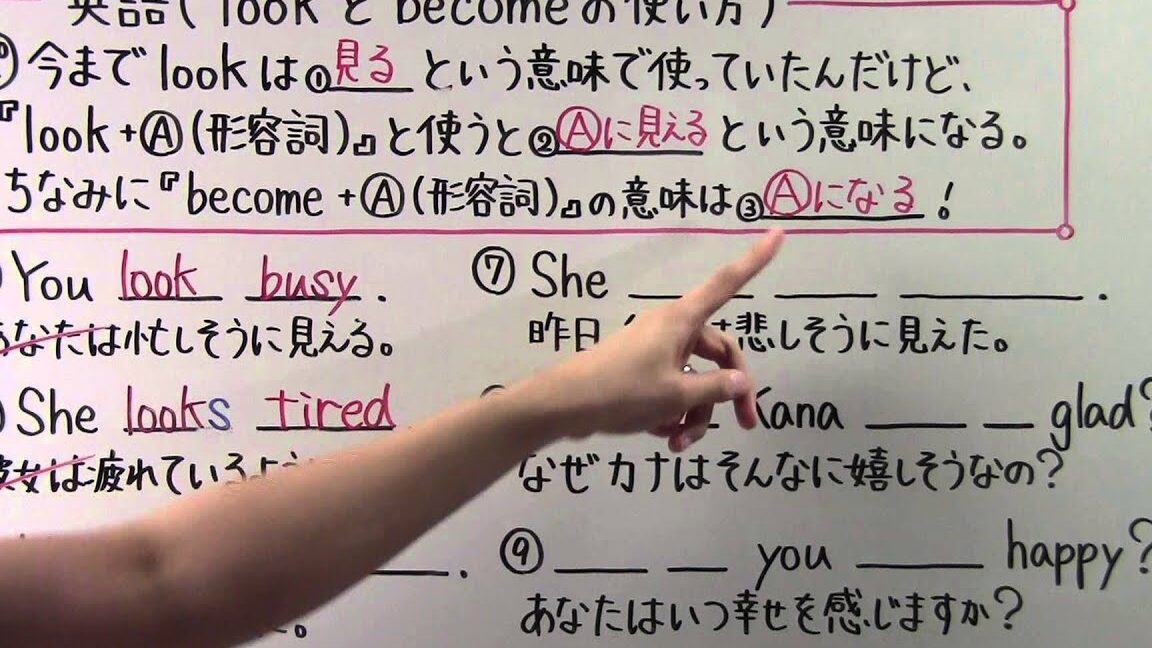 英語( look と become の使い方)
今まで look は①見る という意味で使っていたんだけど、
『look+Ⓐ(形容詞)』と使うと②Ⓐに見える という意味になる。
ちなみに『become +Ⓐ(形容詞)』の意味は③Ⓐになる!
You look busy.
あなたは忙しそうに見える。
She looks tired
彼女は疲れているよ
⑦ She ___ ___ ___.
昨日 は悲しそうに見えた。
Kana ___ __ glad?
なぜカナはそんなに嬉しそうなの?
⑨ ___ __ you ___ happy?
あなたはいつ幸せを感じますか?